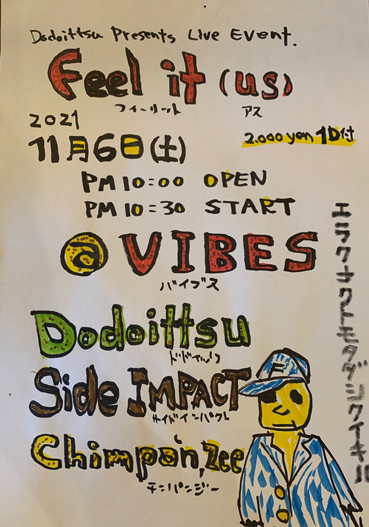 Dodoittsu Presents Live Event.
Feel it (us)
フィーリット アス
2021
11月6日(土)
2.000yen 1D付
PM10:00 OPEN
PM10:30 START
@ VIBES
バイブス
Dodoittsu
ドドイツ
Side IMPACT
サイドインパクト
Chimpan'zee
チンパンジー
F
エラクナクトモタダシクイキル